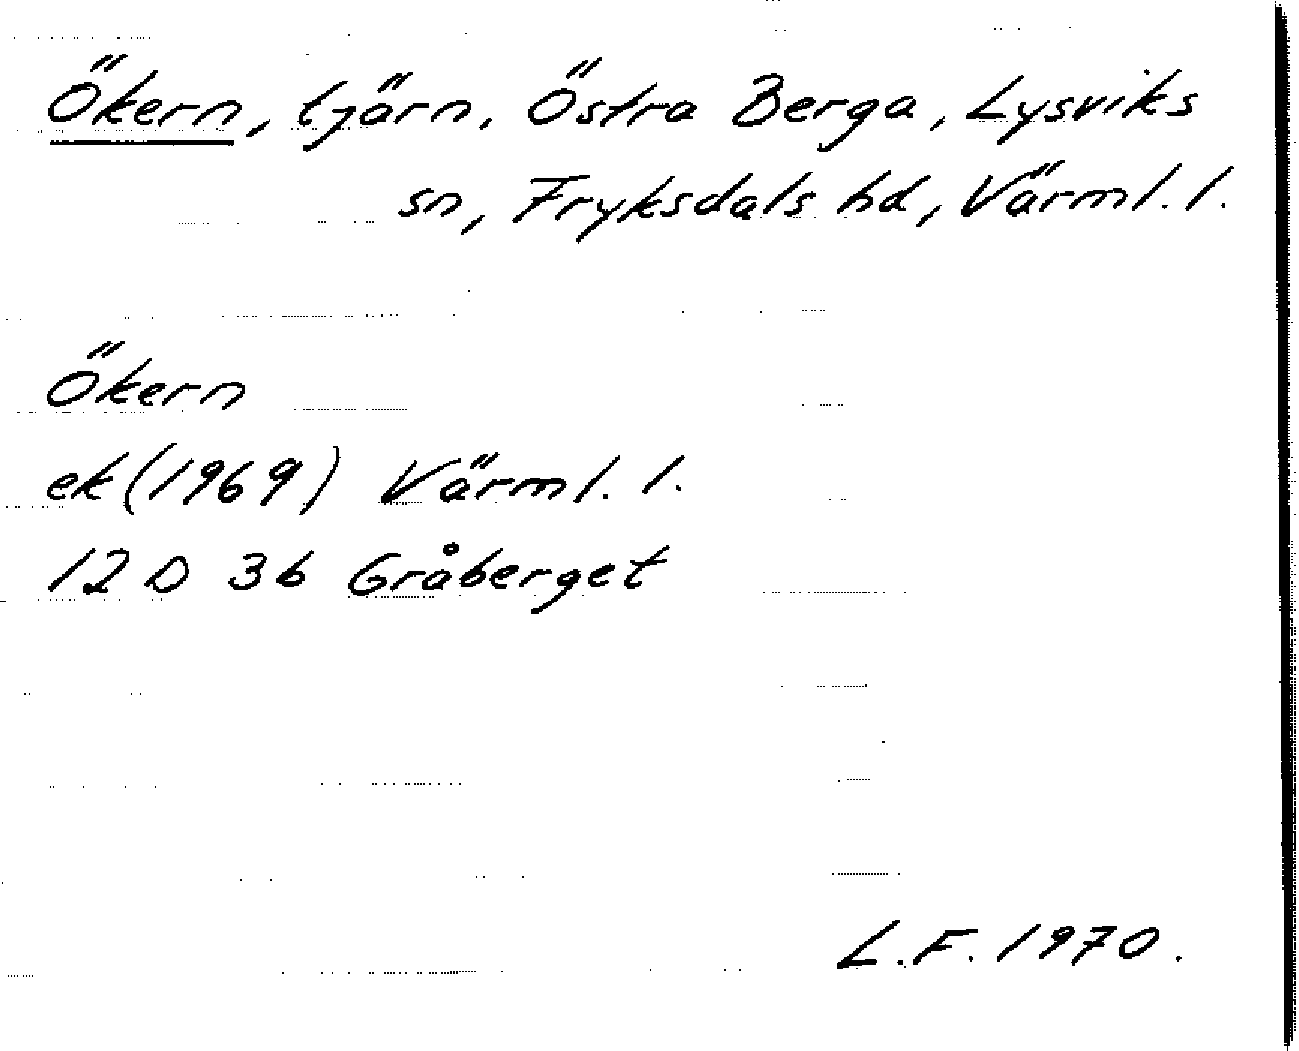 Ökern, tjärn, Östra Berga, Lysviks
sn, Fryksdals hd, Värml. l.
Ökern
ek (1969) Värml. l.
12 D 3b Gråberget
L.F. 1970.